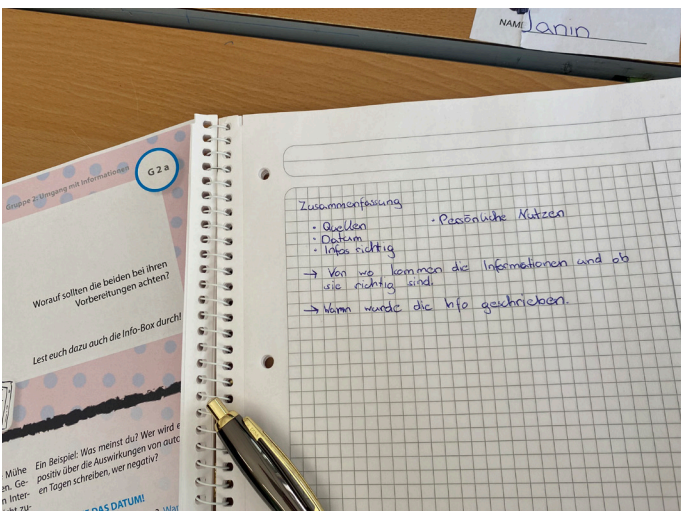 NAME Janin
Gruppe 2: Umgang mit Informationen
G 2 a
Worauf sollten die beiden bei ihren
Vorbereitungen achten?
Lest euch dazu auch die Info-Box durch!
Mühe
en. Ge-
n Inter-
ht zu-
Ein Beispiel: Was meinst du? Wer wird e
positiv über die Auswirkungen von auto
en Tagen schreiben, wer negativ?
DAS DATUM!
Zusammenfassung
• Quellen
• Datum
• Infos richtig
• Pesönliche Nutzen
→ Von wo kommen die Informationen und ob
sie richtig sind.
→ Wann wurde die Info geschrieben.